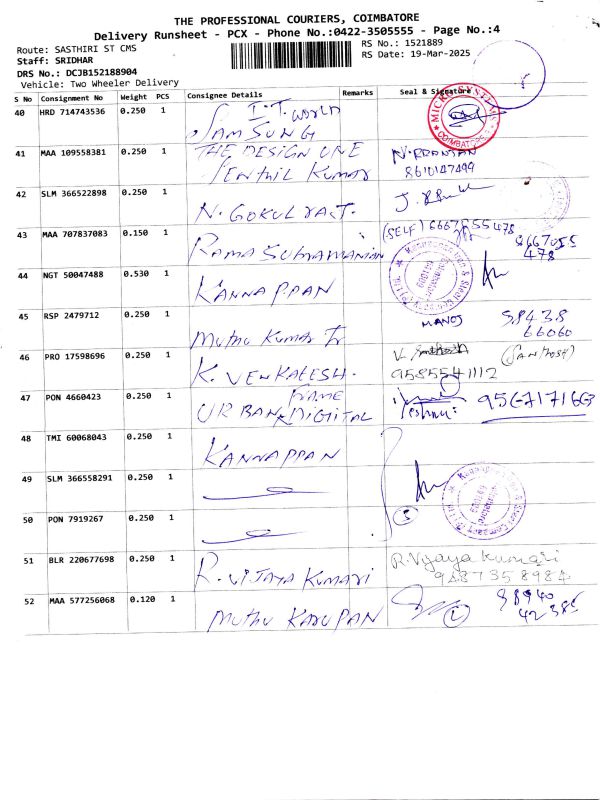 THE PROFESSIONAL COURIERS, COIMBATORE
Delivery Runsheet - PCX - Phone No.:0422-3505555 - Page No.:4
Route: SASTHIRI ST CMS
RS No.: 1521889
Staff: SRIDHAR
RS Date: 19-Mar-2025
DRS No.: DCJB152188904
Vehicle: Two Wheeler Delivery
S No Consignment No Weight PCS Consignee Details Remarks Seal & Signature
40 HRD 714743536 0.250 1 I.T. World
SAMSUNG
MICRO SYSTEMS
COIMBATORE
41 MAA 109558381 0.250 1 THE DESIGN ONE
Senthil Kumar
8610147499
42 SLM 366522898 0.250 1 N. GOKUL RAJ.
43 MAA 707837083 0.150 1 Rama Subramanian
(SELF)
44 NGT 50047488 0.530 1 KANNAPPAN
45 RSP 2479712 0.250 1 Muthu Kumar
MANOJ 98438
66060
46 PRO 17598696 0.250 1 K. VENKATESH.
(SANTHOSH)
9585541112
47 PON 4660423 0.250 1 FRAME
URBAN DIGITAL
9567171663
48 TMI 60068043 0.250 1 KANNAPPAN
49 SLM 366558291 0.250 1
50 PON 7919267 0.250 1
3
51 BLR 220677698 0.250 1 R. VIJAYA KUMARI
R. Vijaya Kumari
9487358984
52 MAA 577256068 0.120 1 MUTHU KARUPAN
98940
42385